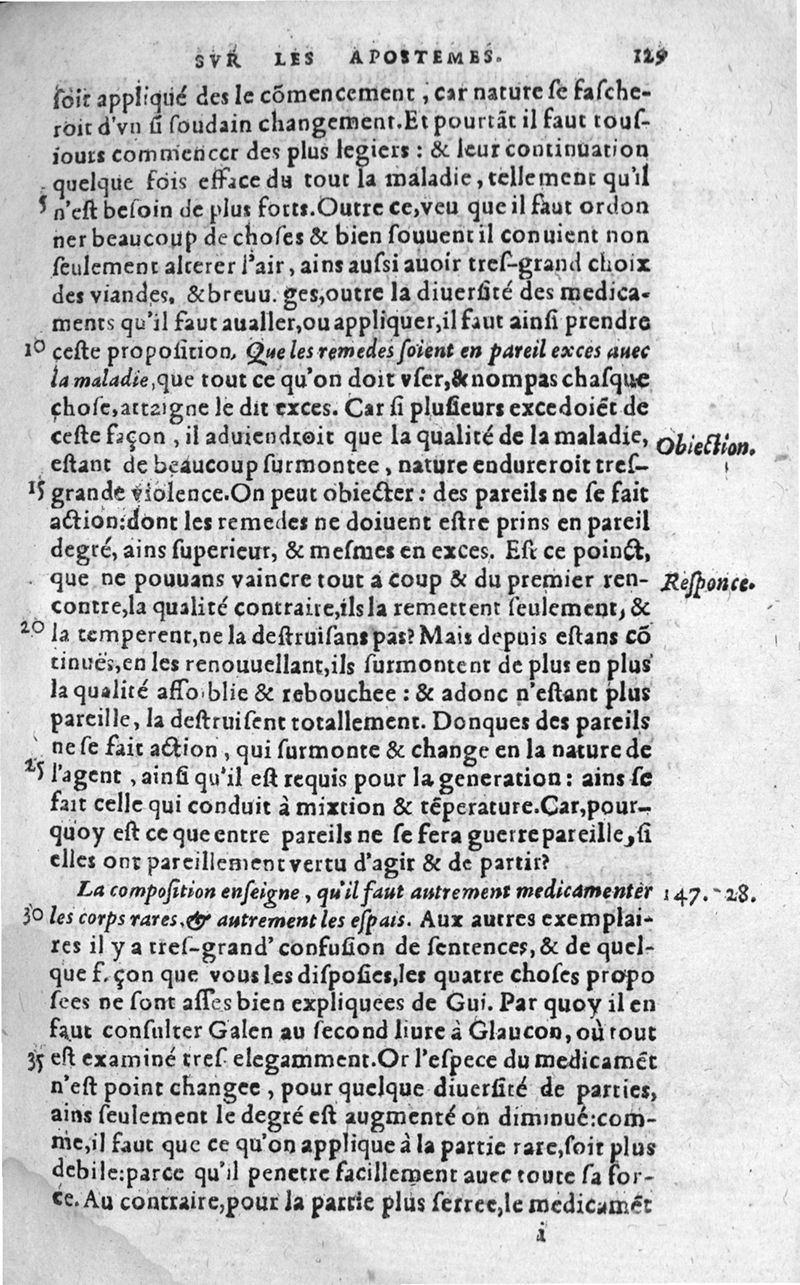 SVR LES APOSTEMES. 129
ſoit appliqué des le cõmencement, car nature ſe faſche-
roit d'vn ſi ſoudain changement. Et pourtãt il faut touſ-
iours commencer des plus legiers : & leur continuation
quelque fois efface du tout la maladie, tellement qu'il
5 n'eſt beſoin de plus forts. Outre ce, veu que il faut ordon
ner beaucoup de choſes & bien ſouuent il conuient non
ſeulement alterer l'air, ains auſsi auoir treſ-grand choix
des viandes, & breuu. ges, outre la diuerſité des medica-
ments qu'il faut aualler, ou appliquer, il faut ainſi prendre
10 ceſte propoſition, Que les remedes ſoient en pareil exces auec
la maladie, que tout ce qu'on doit vſer, & nompas chaſque
choſe, attaigne le dit exces. Car ſi pluſieurs excedoiẽt de
ceſte façon, il aduiendroit que la qualité de la maladie, Obiection.
eſtant de beaucoup ſurmontee, nature endureroit treſ-
15 grande violence. On peut obiecter : des pareils ne ſe fait
action: dont les remedes ne doiuent eſtre prins en pareil
degré, ains ſuperieur, & meſmes en exces. Eſt ce poinct,
que ne pouuans vaincre tout a coup & du premier ren- Reſponce.
contre, la qualité contraire, ils la remettent ſeulement, &
20 la temperent, ne la deſtruiſans pas? Mais depuis eſtans cõ
tinuës, en les renouuellant, ils ſurmontent de plus en plus
la qualité affoiblie & rebouchee : & adonc n'eſtant plus
pareille, la deſtruiſent totallement. Donques des pareils
ne ſe fait action, qui ſurmonte & change en la nature de
25 l'agent, ainſi qu'il eſt requis pour la generation : ains ſe
fait celle qui conduit à mixtion & tẽperature. Car, pour-
quoy eſt ce que entre pareils ne ſe fera guerre pareille, ſi
elles ont pareillement vertu d'agir & de partir?
La compoſition enſeigne, qu'il faut autrement medicamenter 147. 28.
30 les corps rares, & autrement les eſpais. Aux autres exemplai-
res il y a treſ-grand' confuſion de ſentences, & de quel-
que f. çon que vous les diſpoſies, les quatre choſes propo
ſees ne ſont aſſes bien expliquees de Gui. Par quoy il en
faut conſulter Galen au ſecond liure à Glaucon, où tout
35 eſt examiné treſ elegamment. Or l'eſpece du medicamẽt
n'eſt point changee, pour quelque diuerſité de parties,
ains ſeulement le degré eſt augmenté on diminué: com-
me, il faut que ce qu'on applique à la partie rare, ſoit plus
debile: parce qu'il penetre facillement auec toute ſa for-
ce. Au contraire, pour la partie plus ſerree, le medicamẽt
i